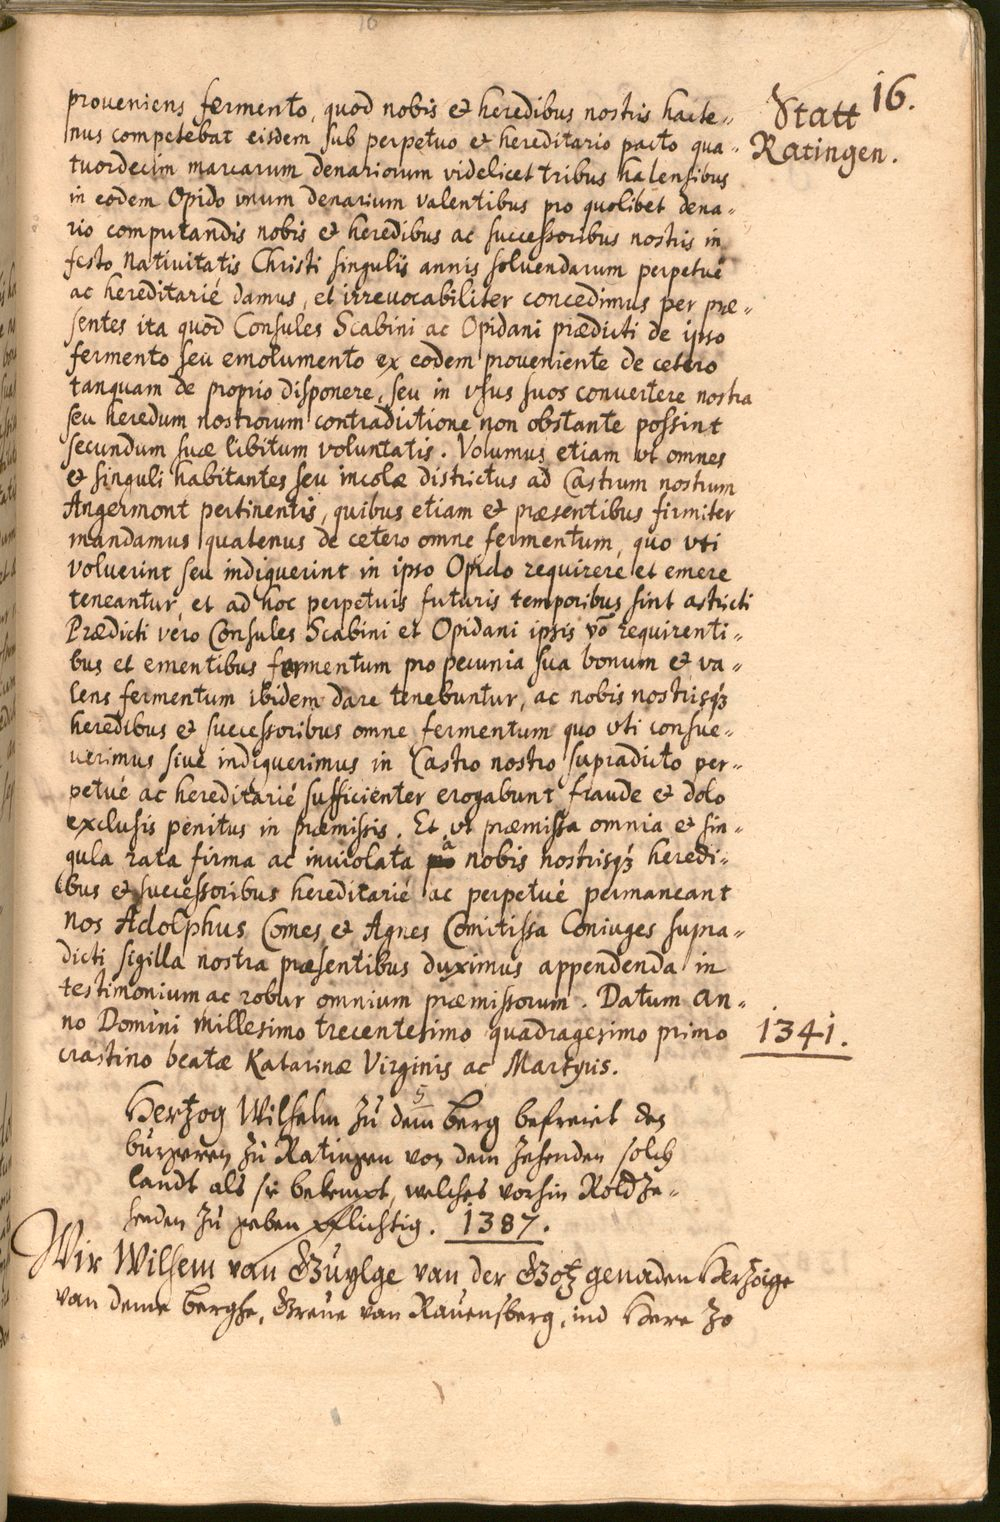 16
16.
Statt
Ratingen.
proveniens fermento, quod nobis et heredibus nostris hacte-
nus competebat eisdem sub perpetuo et hereditario pacto qua-
tuordecim marcarum denariorum videlicet tribus halensibus
in eodem Opido unum denarium valentibus pro quolibet dena-
rio computandis nobis et heredibus ac successoribus nostris in
festo Nativitatis Christi singulis annis solvendarum perpetué
ac hereditarié damus, et irrevocabiliter concedimus per præ-
sentes ita quod Consules Scabini ac Opidani prædicti de ipso
fermento seu emolumento ex eodem proveniente de cetero
tanquam de proprio disponere, seu in vsus suos convertere nostra
seu heredum nostrorum contradictione non obstante possint
secundum suæ libitum voluntatis. Volumus etiam vt omnes
et singuli habitantes seu incolæ districtus ad Castrum nostrum
Angermont pertinentis, quibus etiam et præsentibus firmiter
mandamus quatenus de cetero omne fermentum, quo vti
voluerint seu indiguerint in ipso Opido requirere et emere
teneantur, et ad hoc perpetuis futuris temporibus sint astricti
Prædicti vero Consules Scabini et Opidani ipsis vō requirenti-
bus et ementibus fermentum pro pecunia sua bonum et va-
lens fermentum ibidem dare tenebuntur, ac nobis nostrisqȝ
heredibus et successoribus omne fermentum quo vti consue-
verimus sive indiguerimus in Castro nostro supradicto per-
petué ac hereditarié sufficienter erogabunt fraude et dolo
exclusis penitus in præmissis. Et vt præmissa omnia et sin-
gula rata firma ac inviolata a nobis nostrisqȝ heredi-
bus et successoribus hereditarié ac perpetué permaneant
nos Adolphus Comes et Agnes Comitissa Coniuges supra-
dicti sigilla nostra præsentibus duximus appendenda in
testimonium ac robur omnium præmissorum. Datum an-
no Domini millesimo trecentesimo quadragesimo primo
1341.
crastino beatæ Katarinæ Virginis ac Martyris.
5
Hertzog Wilhelm zu dem Berg befreiet den
bürgeren zu Ratingen von dem Zehenden solch
landt als sie bekempt, welches vorhin Roldze-
henden zu geben pflichtig. 1387.
Wir Wilhem van Guylge van der Gotz genaden Herzoige
van deme Berghe, Greue van Rauensberg, ind Here zo